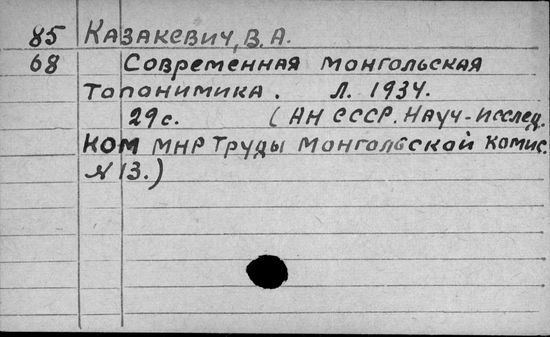 85 Казакевич, В.А.
68 Современная монгольская
Топонимика. Л. 1934.
29с. (АН СССР. Науч-исслед.
ком МНР Труды Монгольской комис.
N 13.)